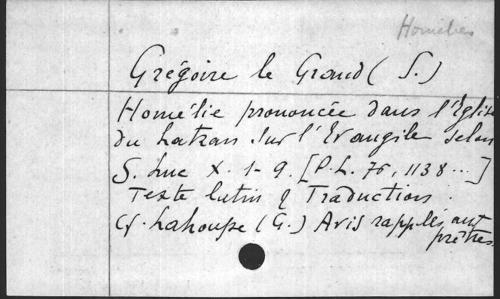 Homélies
Grégoire le Grand (S.)
Homélie prononcée dans l'Eglise
du Latran sur l'Evangile selon
S. Luc X. 1-9. [P.L. 76, 1138 ...]
Texte latin & Traduction.
Cf. Lahousse (G.) Avis rappelés aux
prêtres